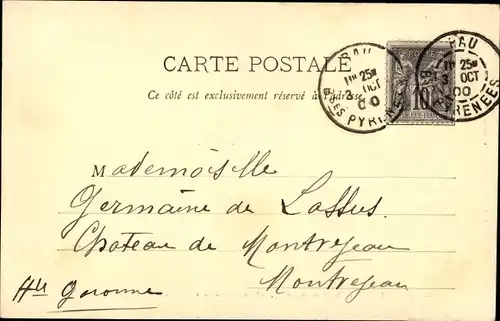 CARTE POSTALE
Ce côté est exclusivement réservé à l'adresse.
PAU
11H 25M
3 OCT
00
BSES PYRENEES
10
PAU
11H 25M
3 OCT
00
PYRENEES
Mademoiselle
Germaine de Lassus.
Chateau de Montrejeau
Montrejeau
Hte Garonne